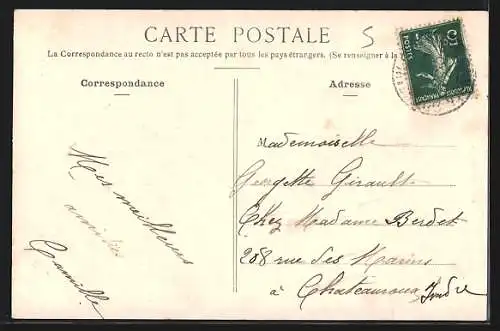 CARTE POSTALE
5
La Correspondance au recto n'est pas acceptée par tous les pays étrangers. (Se renseigner à la
Correspondance
Adresse
Mes meilleures
amitiés
Camille
Mademoiselle
Georgette Girault
Chez Madame Berdet
208 rue des Marins
à Chateauroux Indre
5
POSTES